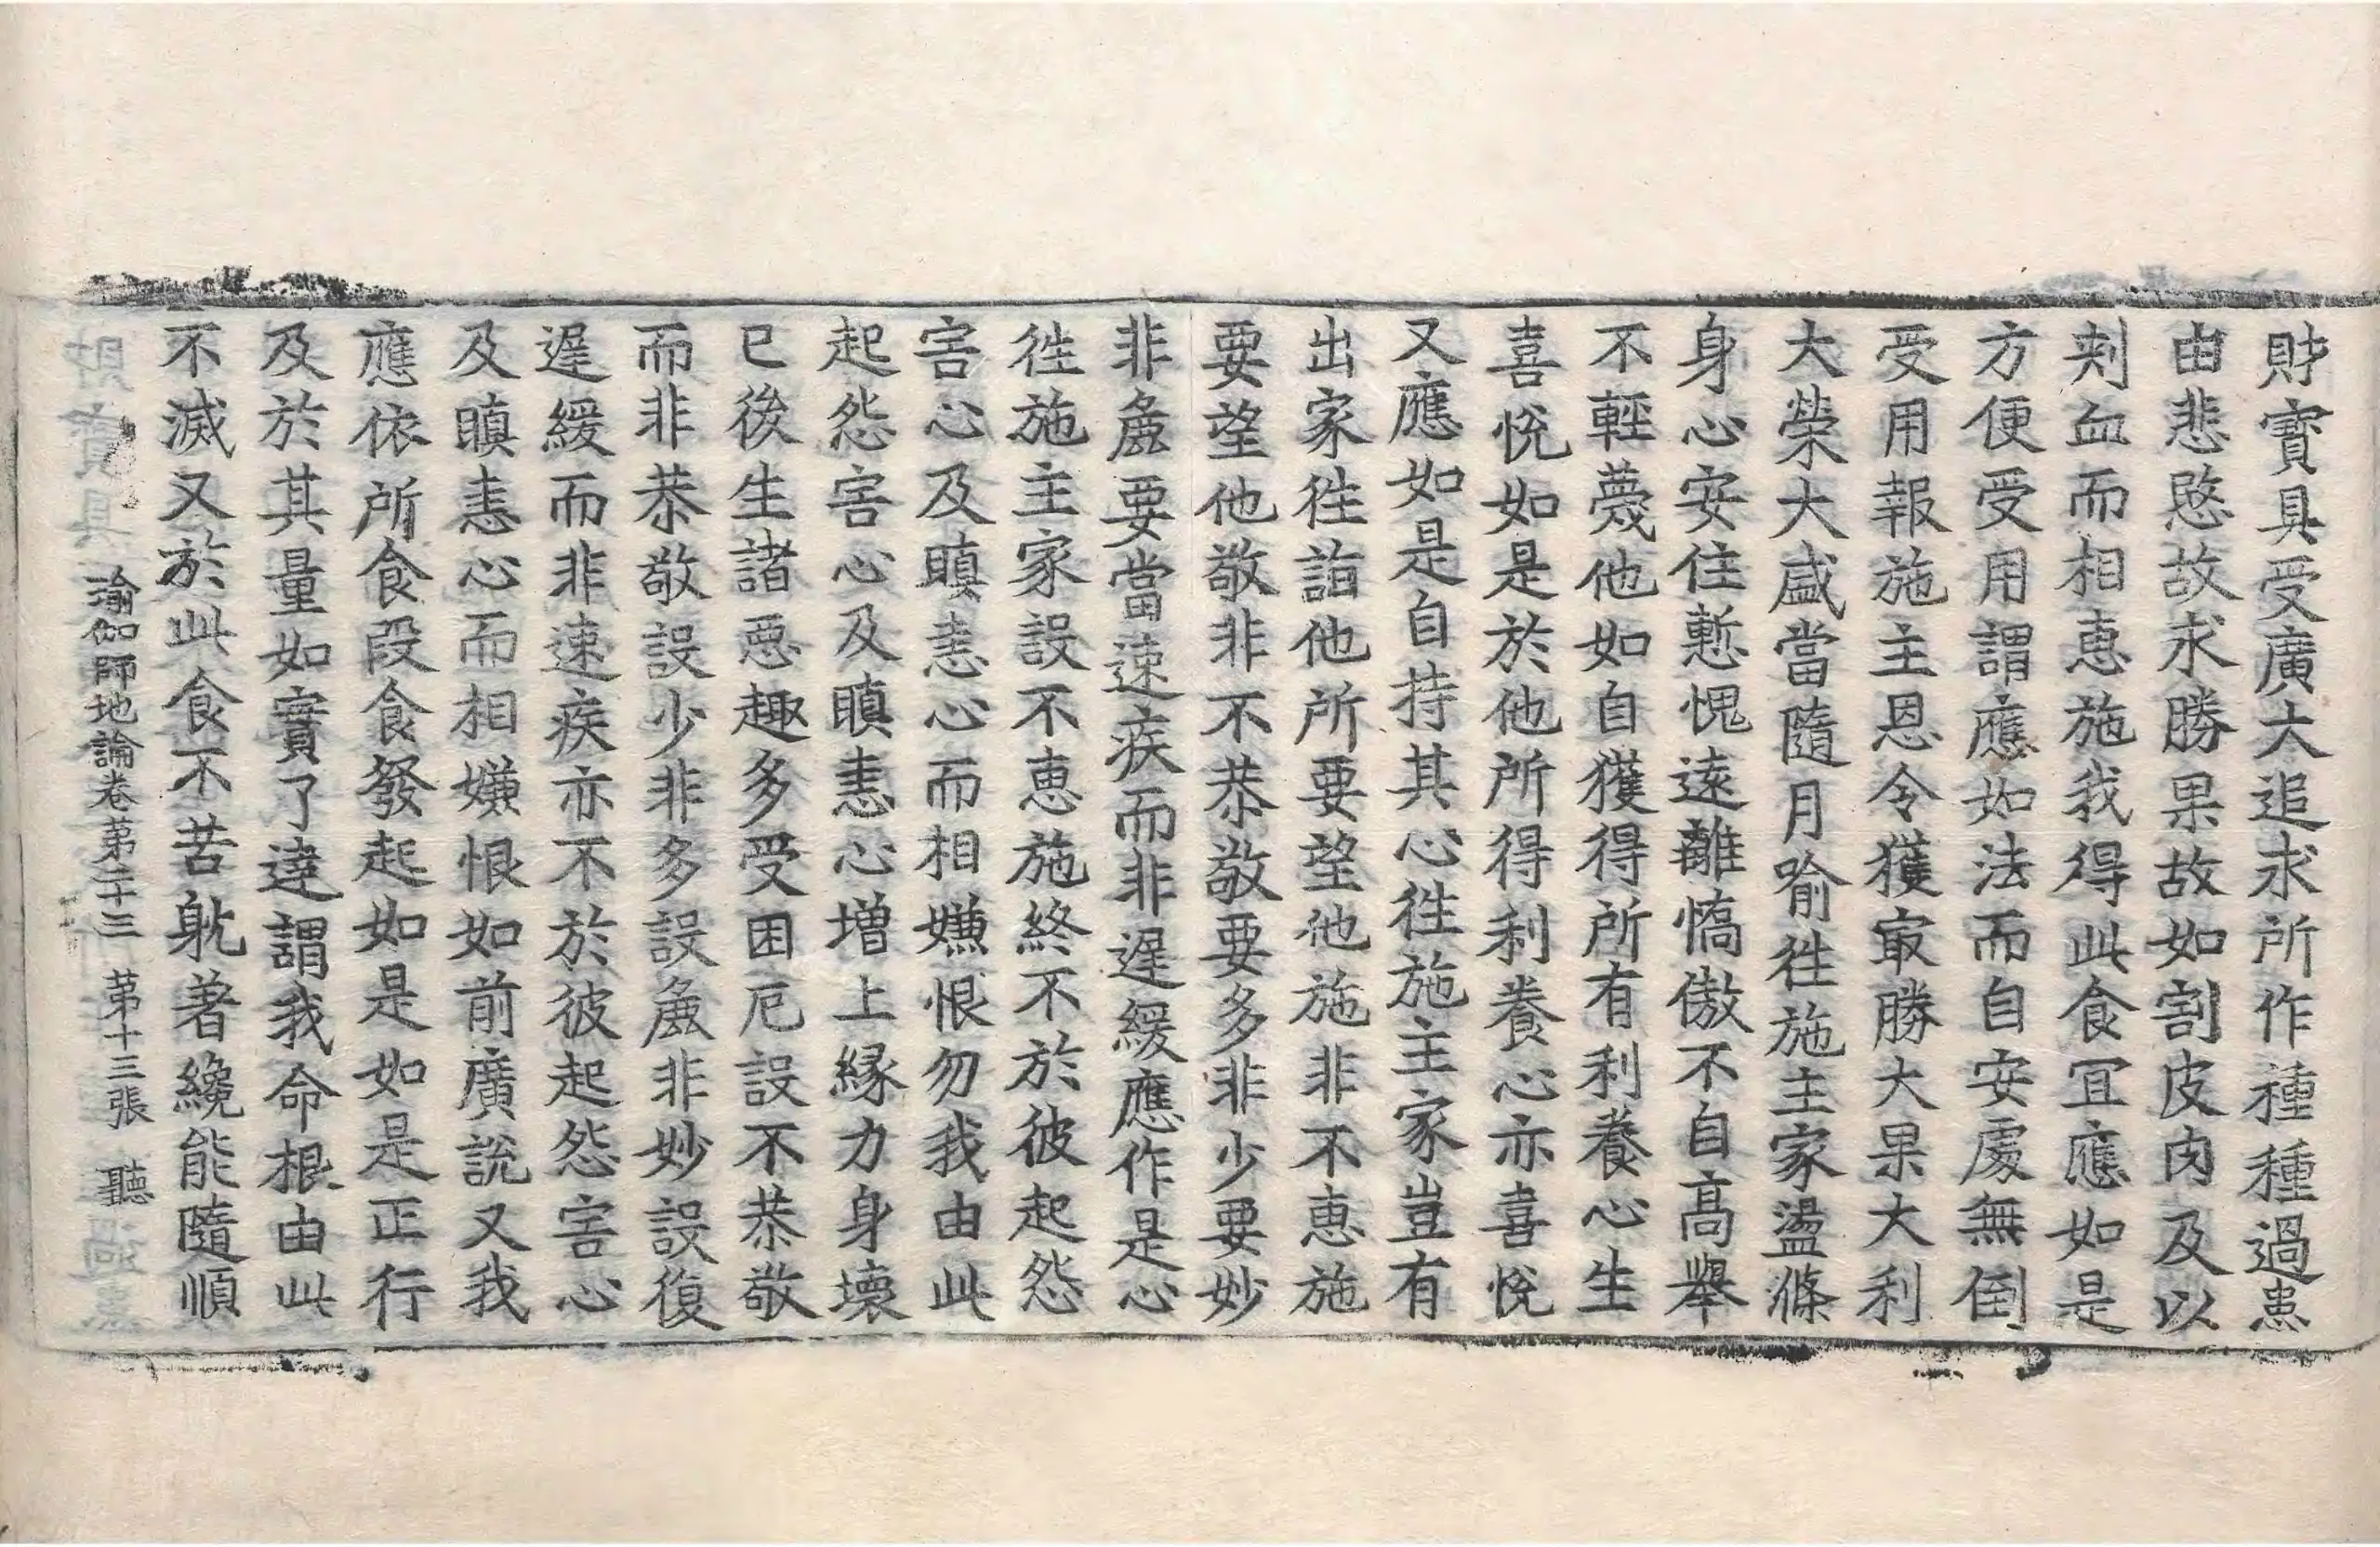 財寶具受廣大追求所作種種過患
由悲愍故求勝果故如割皮肉及以
刾血而相惠施我得此食宜應如是
方便受用謂應如法而自安處無倒
受用報施主恩令獲冣勝大果大利
大榮大盛當隨月喻徃施主家盪滌
身心安住慙愧遠離憍傲不自高舉
不輕蔑他如自獲得所有利養心生
喜悅如是於他所得利養心亦喜悅
又應如是自持其心徃施主家豈有
出家徃詣他所要望他施非不惠施
要望他敬非不恭敬要多非少要妙
非麁要當速疾而非遲緩應作是心
徃施主家設不惠施終不於彼起怨
害心及瞋恚心而相嫌恨勿我由此
起怨害心及瞋恚心增上緣力身壞
已後生諸惡趣多受困厄設不恭敬
而非恭敬設少非多設麁非妙設復
遲緩而非速疾亦不於彼起怨害心
及瞋恚心而相嫌恨如前廣說又我
應依所食段食發起如是如是正行
及於其量如實了達謂我命根由此
不滅又於此食不苦躭著纔能隨順
瑜伽師地論卷第二十三　第十三張　聽